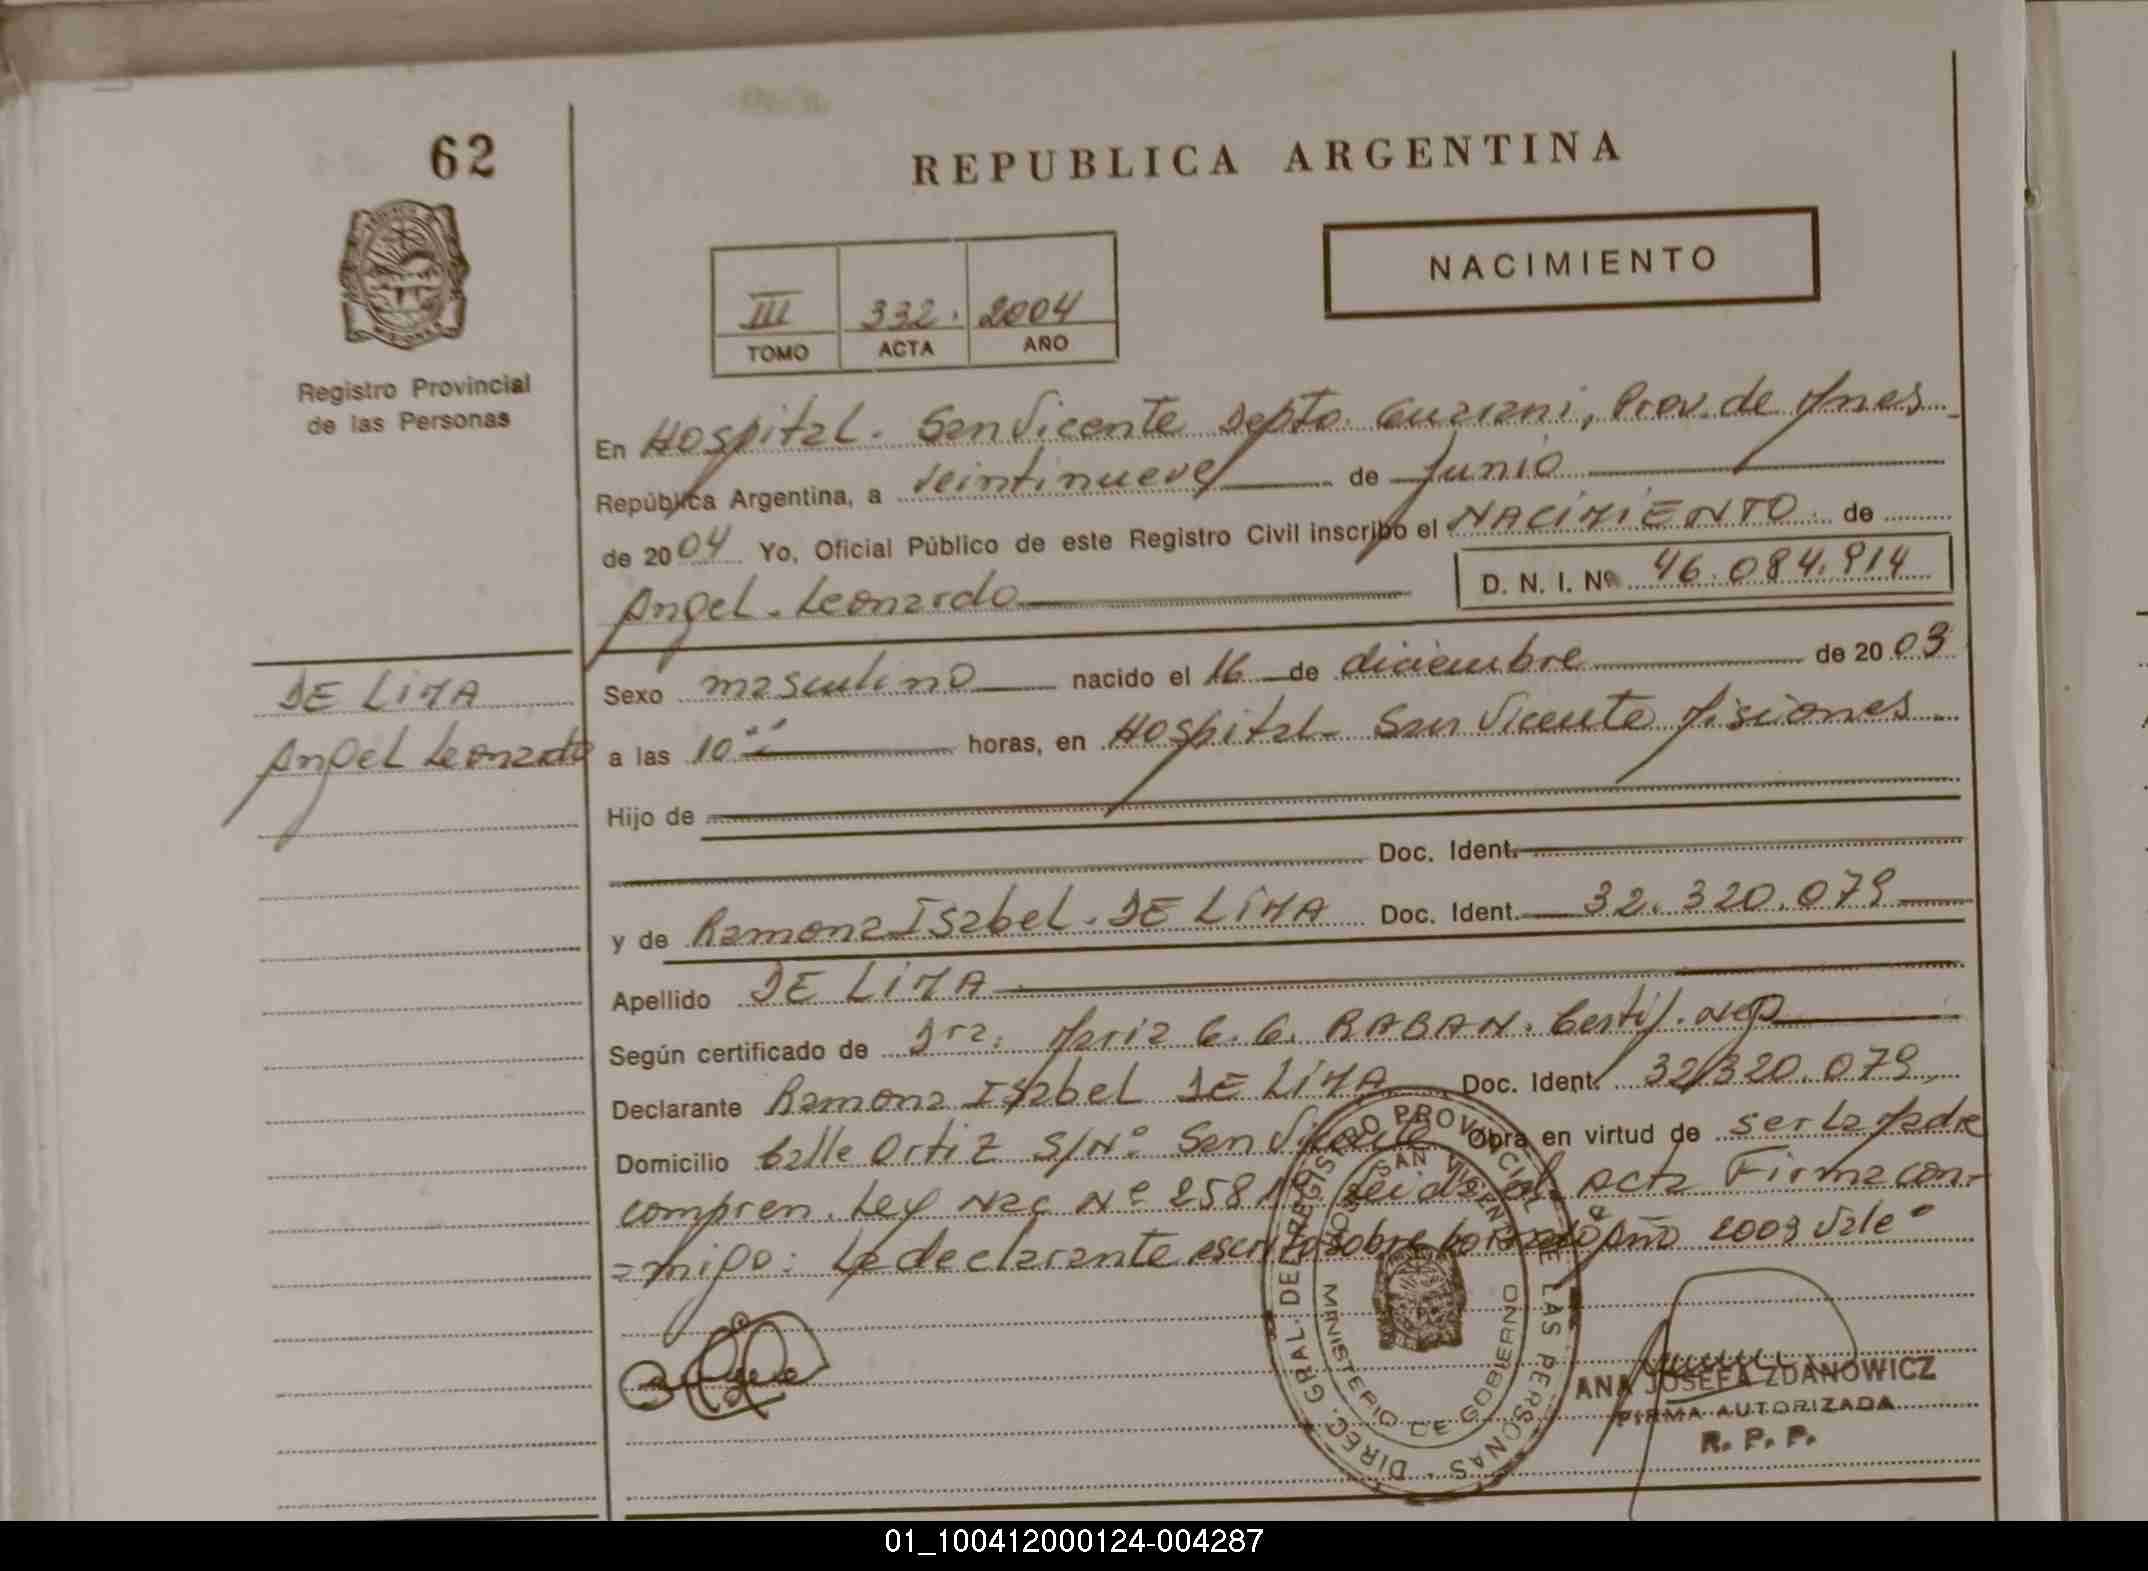 62
REPUBLICA ARGENTINA
NACIMIENTO
III 332. 2004
TOMO ACTA AÑO
Registro Provincial
de las Personas
En Hospital. San Vicente Depto. Guarani, Prov. de Mnes
República Argentina, a veintinueve de Junio
de 2004 Yo, Oficial Público de este Registro Civil inscribo el NACIMIENTO de
Angel Leonardo D. N. I. Nº 46.084.914
DE LIMA
Angel Leonardo
Sexo masculino nacido el 16 de diciembre de 2003
a las 10 horas, en Hospital San Vicente Misiones
Hijo de
Doc. Ident.
y de Ramona Isabel DE LIMA Doc. Ident. 32.320.079
Apellido DE LIMA
Según certificado de Dra. Maria C. G. RABAN. Certif. Neg
Declarante Ramona Isabel DE LIMA Doc. Ident. 32.320.079
Domicilio Calle Ortiz S/Nº San Vicente Obra en virtud de ser la Madre
compren. Ley Nac Nº 258 Leida el Acta Firma con-
=migo: La declarante escrito sobre borrado Año 2003 Vale
DIREC. GRAL. DEL REGISTRO PROVINCIAL DE LAS PERSONAS
SAN VICENTE
MINISTERIO DE GOBIERNO
ANA JOSEFA ZDANOWICZ
FIRMA AUTORIZADA
R. P. P.
01_100412000124-004287